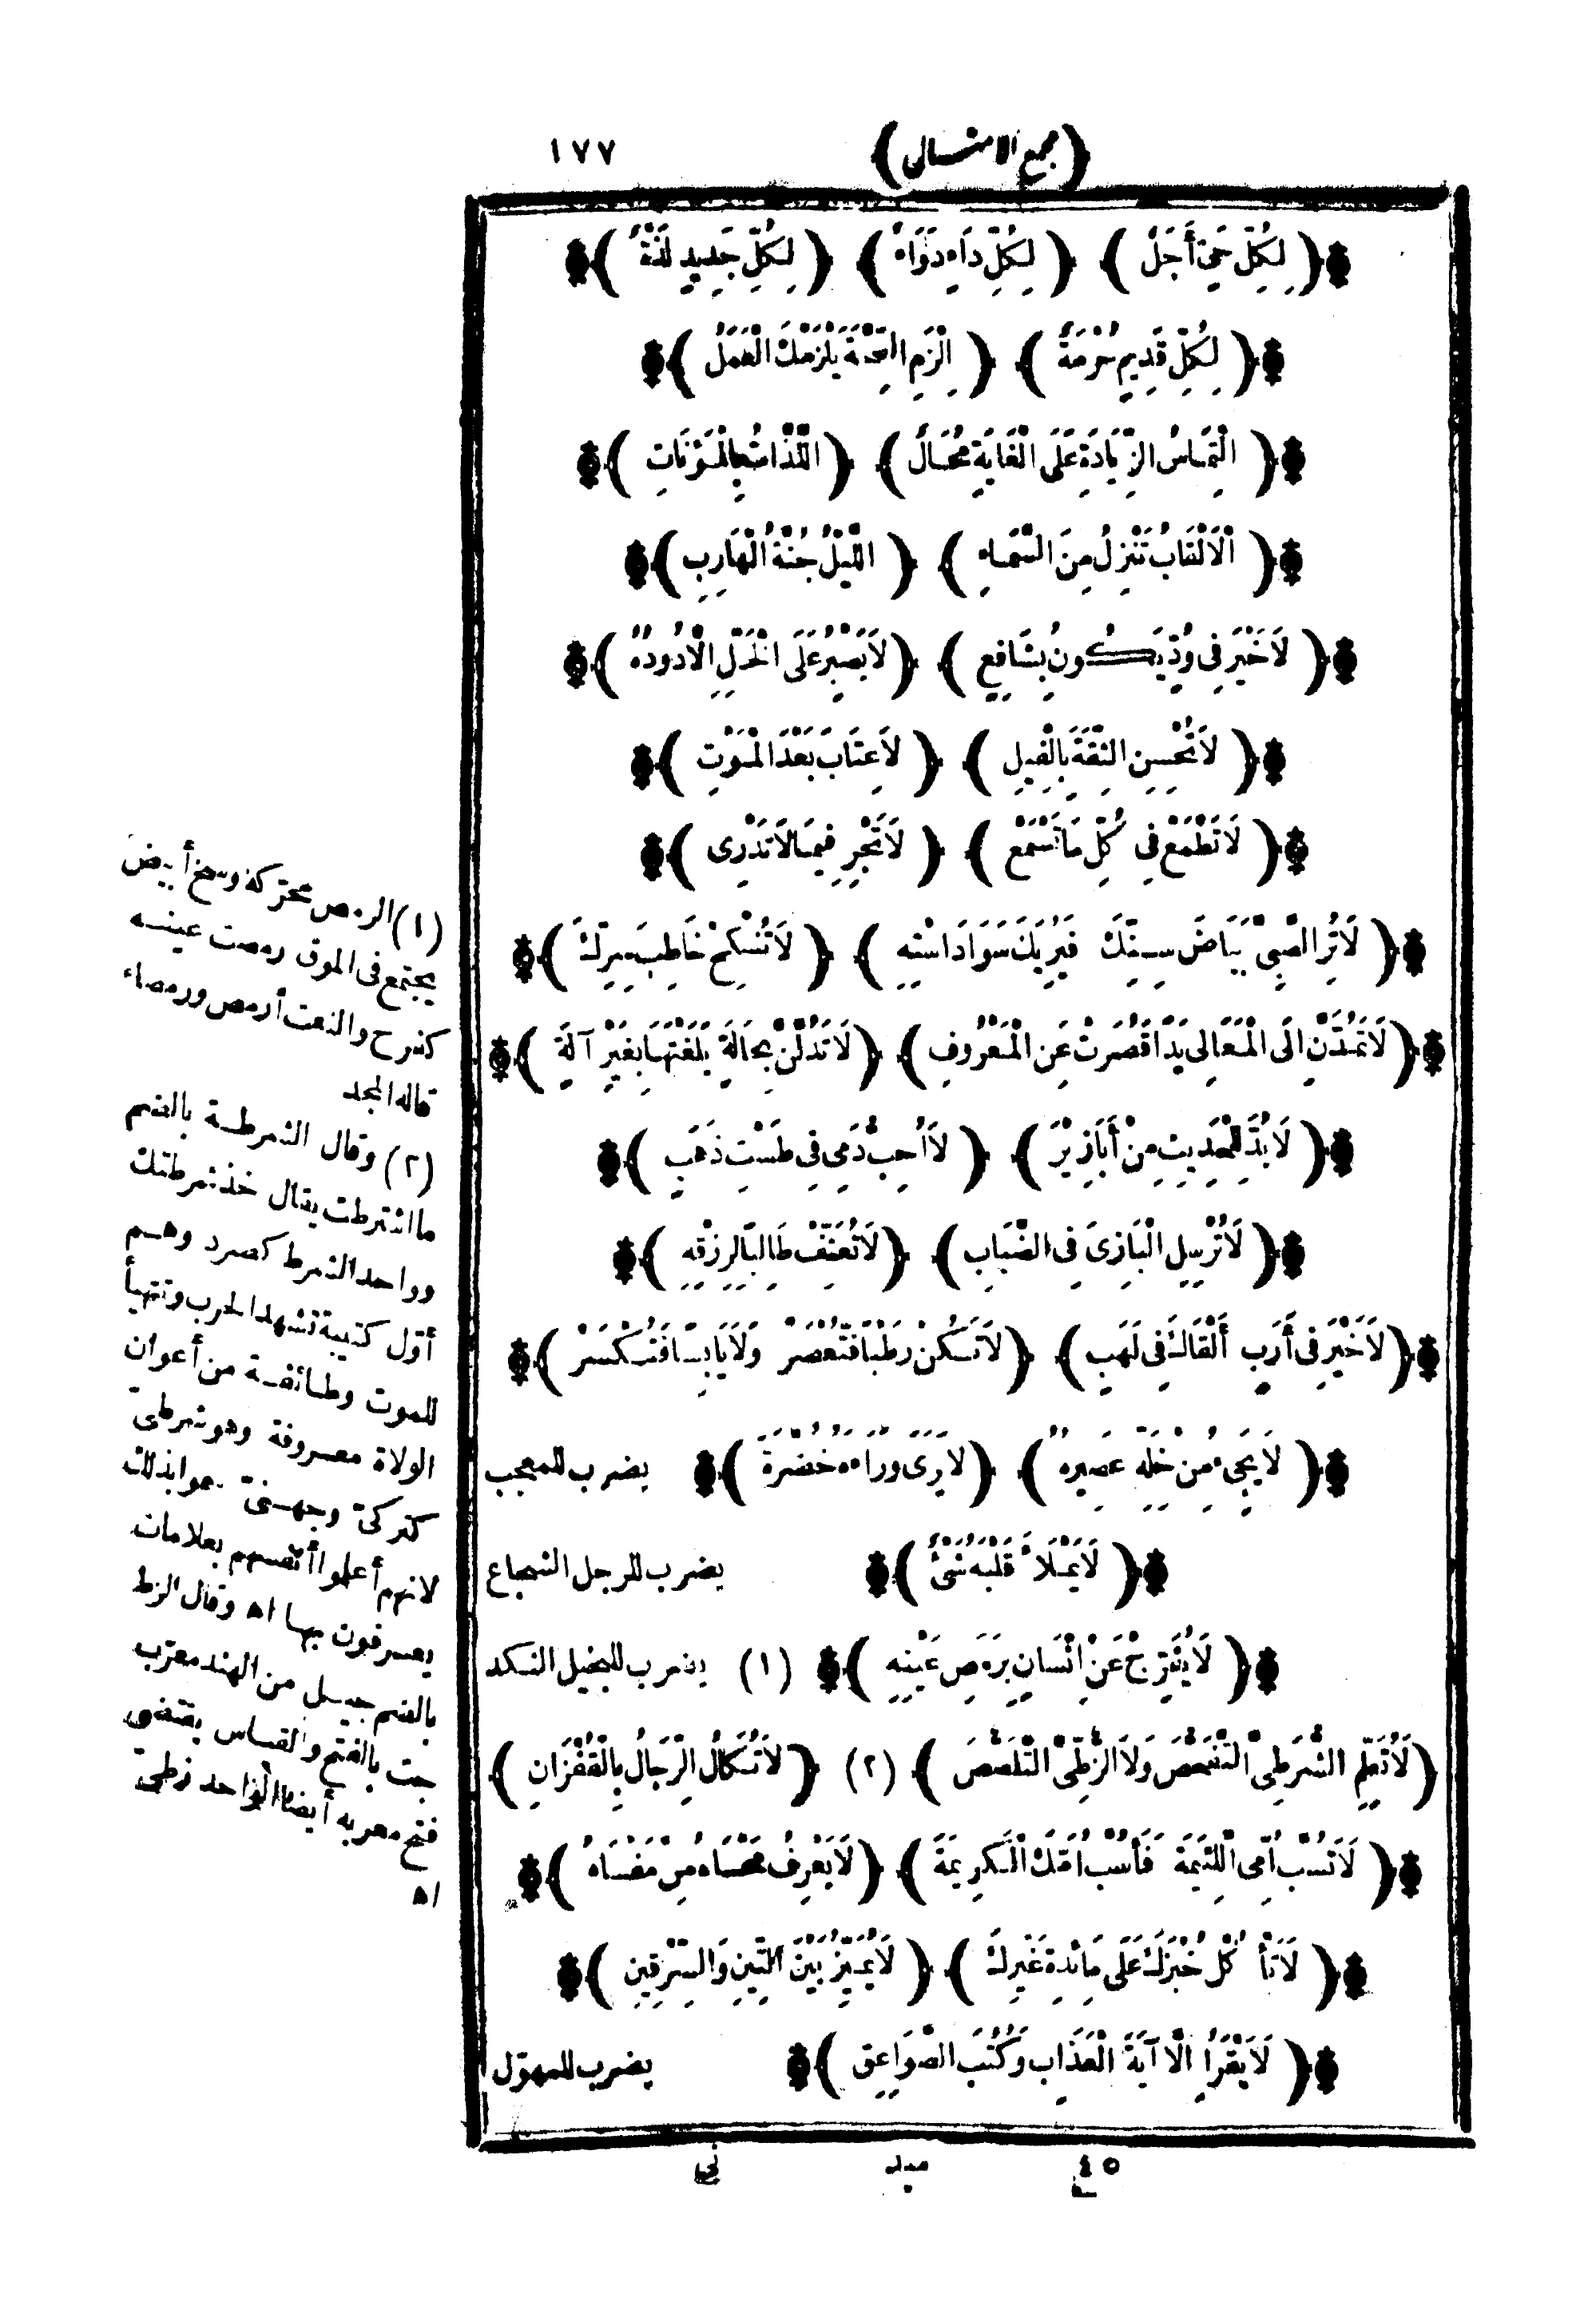 (مجمع الامثال) ١٧٧
(لِكُلِّ حَيٍّ أَجَلٌ) (لِكُلِّ دَاءٍ دَوَاءٌ) (لِكُلِّ جَدِيدٍ لَذَّةٌ)
(لِكُلِّ قَدِيمٍ حُرْمَةٌ) (اِلْزَمِ الصِّحَّةَ يَلْزَمْكَ الْعَمَلُ)
(الْتِمَاسُ الزِّيَادَةِ عَلَى الْغَايَةِ مُحَالٌ) (اللَّذَّاتُ بِالْمَؤُنَاتِ)
(اَلْاَلْقَابُ تَنْزِلُ مِنَ السَّمَاءِ) (اللَّيْلُ جُنَّةُ الْهَارِبِ)
(لَاخَيْرَ فِى وُدٍّ يَكُونُ بِشَافِعٍ) (لَايَصْبِرُ عَلَى الْخَلِّ اِلَّا دُودُهُ)
(لَا تُحْسِنِ الثِّقَةَ بِالْفِيلِ) (لَاعِتَابَ بَعْدَ الْمَوْتِ)
(لَا تَطْمَعْ فِى كُلِّ مَا تَسْمَعُ) (لَا تَجْرِ فِيمَا لَا تَدْرِى)
(لَا تُرِ الصَّبِىَّ بَيَاضَ سِنِّكَ فَيُرِيَكَ سَوَادَ اسْتِهِ) (لَا تَنْكِحْ خَاطِبَ سِرِّكَ)
(لَا تَمُدَّنَّ اِلَى الْمَعَالِى يَدًا قَصُرَتْ عَنِ الْمَعْرُوفِ) (لَا تَدُلَّنَّ بِحَالَةٍ بَلَغْتَهَا بِغَيْرِ آلَةٍ)
(لَا بُدَّ لِلْحَدِيثِ مِنْ أَبَازِيرَ) (لَا أُحِبُّ دَمِى فِى طَسْتِ ذَهَبٍ)
(لَا تُرْسِلِ الْبَازِىَ فِى الضَّبَابِ) (لَا تُعَنِّفْ طَالِبًا لِرِزْقِهِ)
(لَا خَيْرَ فِى أَرَبٍ أَلْقَاكَ فِى لَهَبٍ) (لَا تَكُنْ رَطْبًا فَتُعْصَرْ وَلَا يَابِسًا فَتُكْسَرْ)
(لَا يَجِىءُ مِنْ خَلِّهِ عَصِيرُهُ) (لَا يَرَى وَرَاءَهُ خُضْرَةً) يضرب للمعجب
(لَا يَمْلَأُ قَلْبَهُ شَىْءٌ) يضرب للرجل الشجاع
(لَا يُفَرِّجُ عَنْ اِنْسَانٍ بِرَمَصِ عَيْنِهِ) (١) يضرب للبخيل النكد
(لَا تُعَلِّمِ الشُّرَطِىَّ التَّفَحُّصَ وَلَا الزُّطِّىَّ التَّلَصُّصَ) (٢) (لَا تُكَالُ الرِّجَالُ بِالْقُفْزَانِ)
(لَا تَسُبَّ اُمِّى اللَّئِيمَةَ فَأَسُبَّ اُمَّكَ الْكَرِيمَةَ) (لَا يَعْرِفُ مَحْسَاهُ مِنْ مَفْسَاهُ)
(لَا تَأْكُلْ خُبْزَكَ عَلَى مَائِدَةِ غَيْرِكَ) (لَا يُمَيِّزُ بَيْنَ التِّينِ وَالسِّرْقِينِ)
(لَا يَقْرَأُ اِلَّا آيَةَ الْعَذَابِ وَكُتُبَ الصَّوَاعِقِ) يضرب للمهوّل
٤٥ ميد نى
(١) الرمص محركة وسخ أبيض
يجتمع فى الموق رمصت عينه
كفرح والنعت أرمص ورمصاء
قاله المجد
(٢) وقال الشرطة بالضم
ما اشترطت يقال خذ شرطتك
وواحد الشرط كصرد وهم
أوّل كتيبة تشهد الحرب وتتهيأ
للموت وطائفة من أعوان
الولاة معروفة وهو شرطىّ
كتركىّ وجهنىّ سموا بذلك
لانهم أعلموا أنفسهم بعلامات
يعرفون بها اه وقال الزط
بالضم جيل من الهند معرّب
جت بالفتح والقياس يقتضى
فتح معربه أيضا الواحد زطىّ
اه